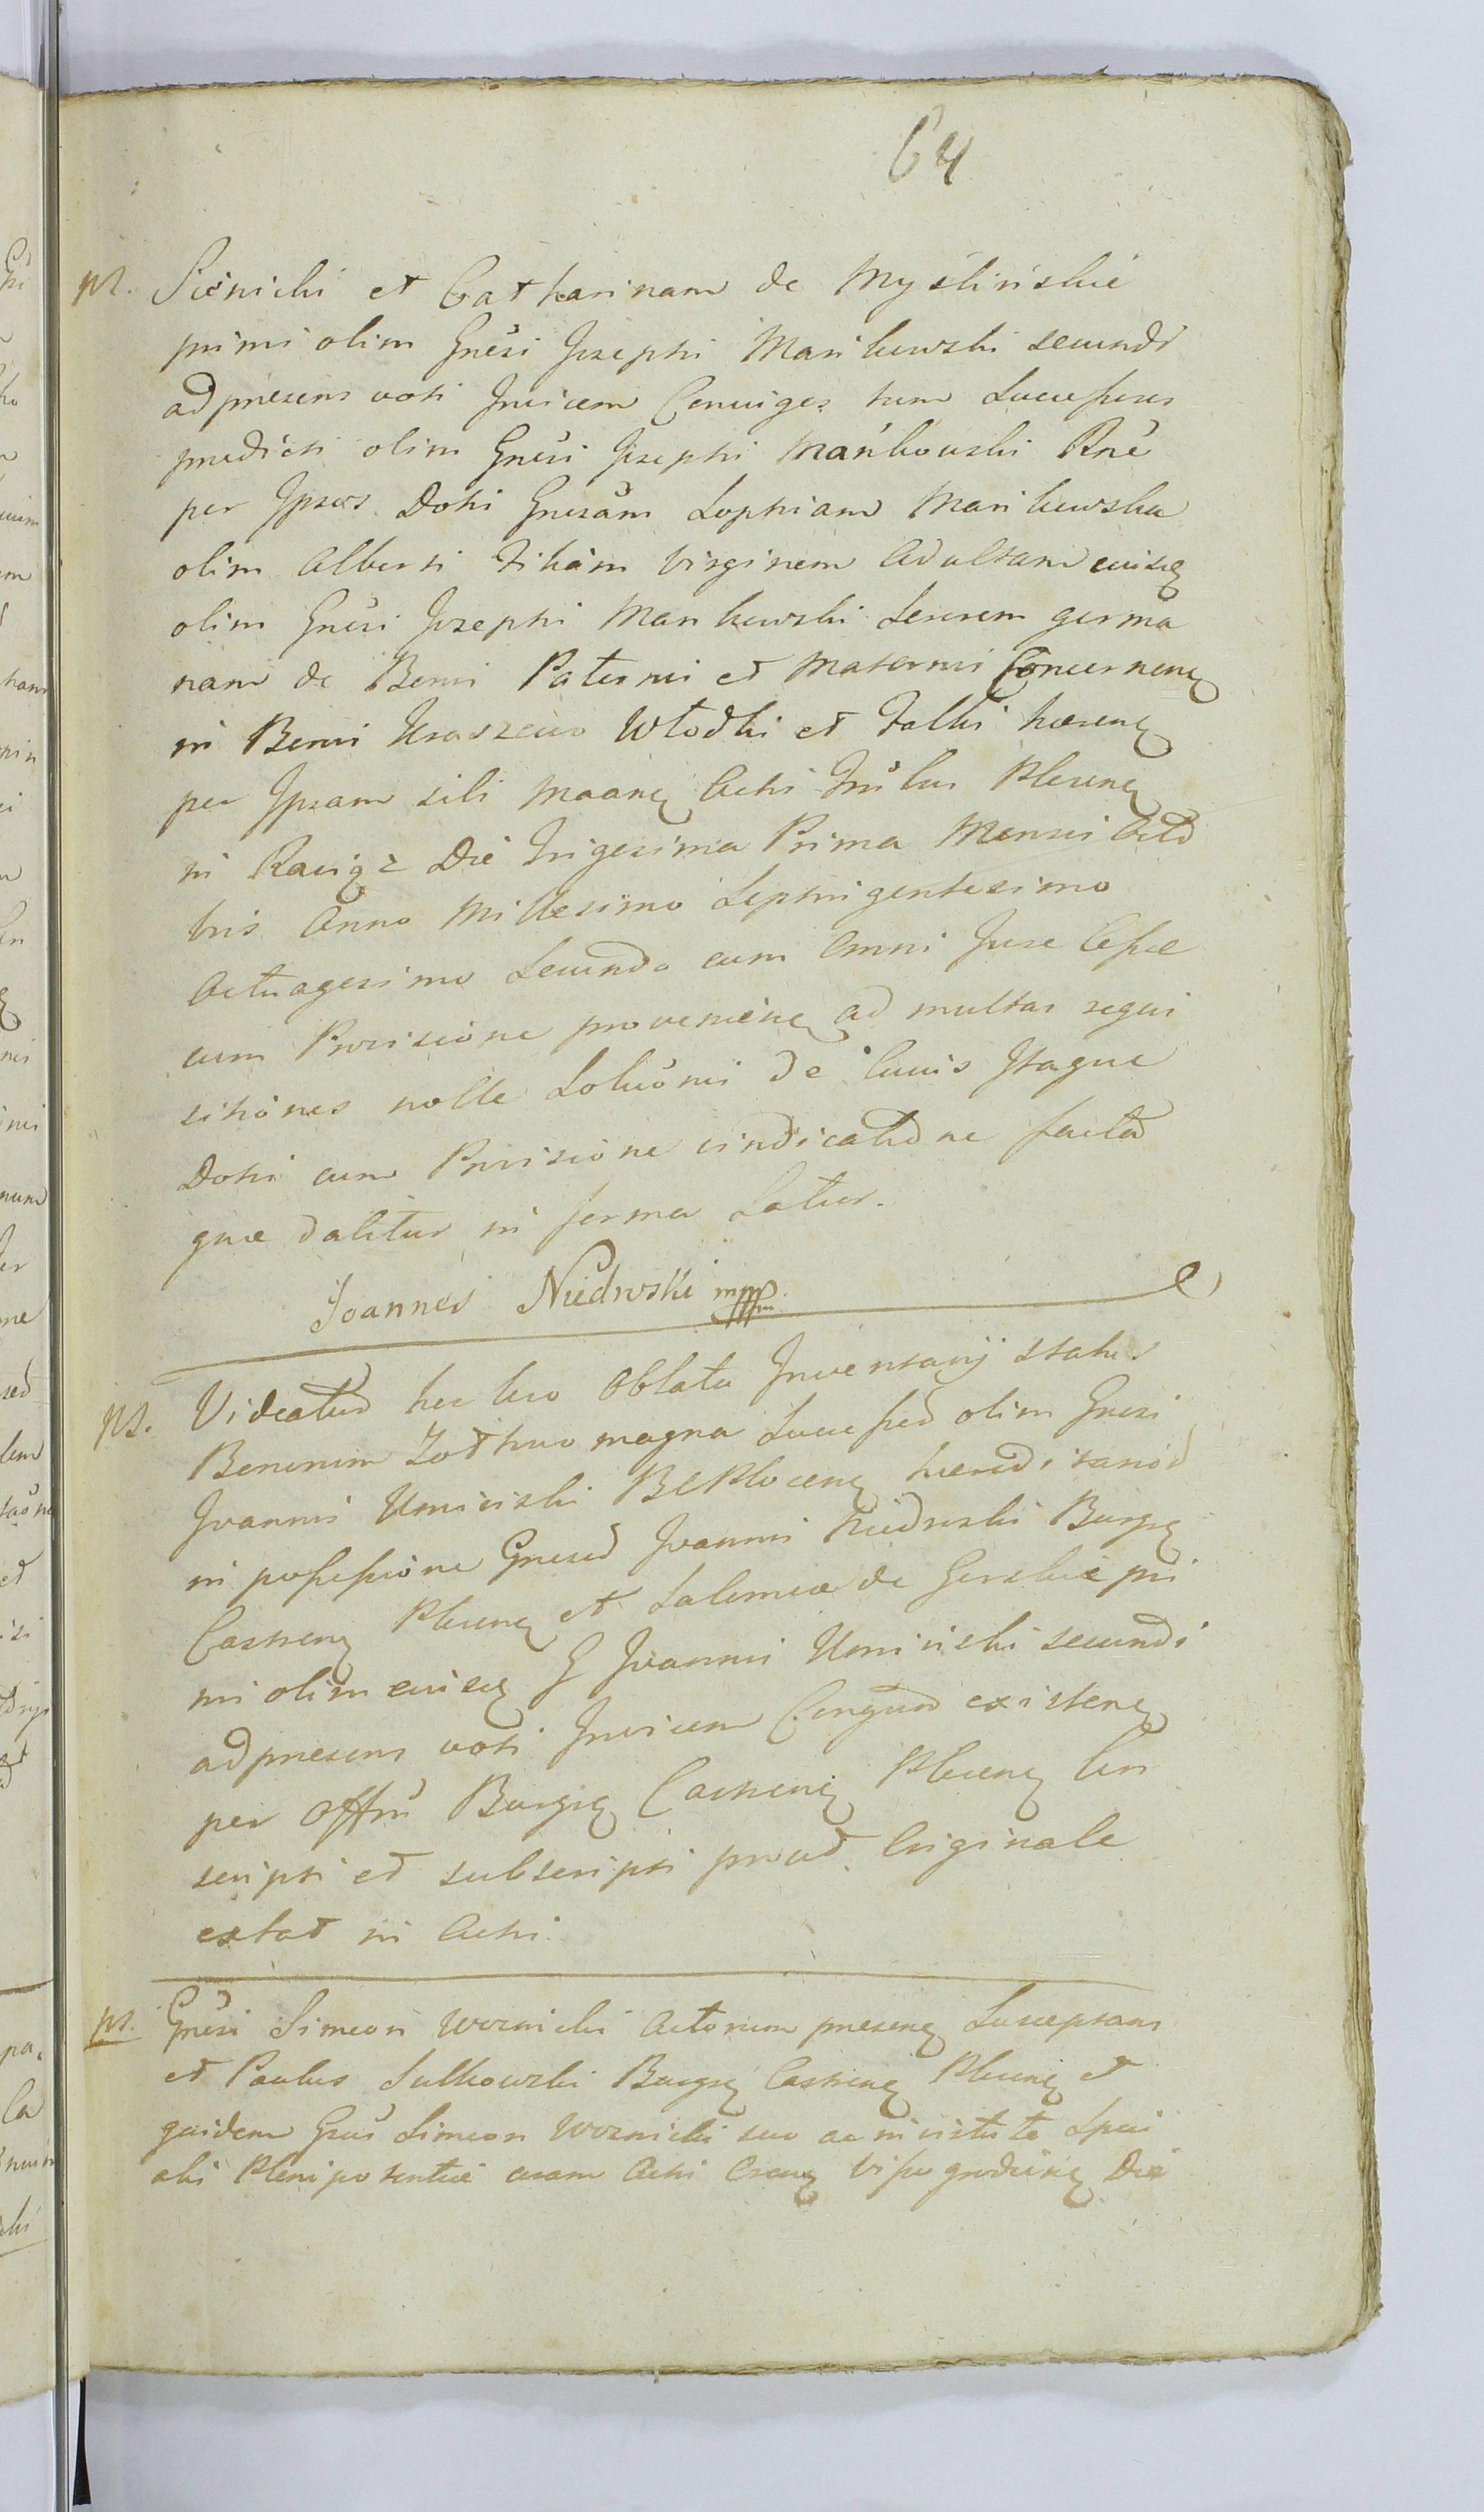 64
ps. Sieniski et Catharinam de Myślińskie
primi olim Gnesi Josephi Mankowski secundi
ad presens voti Invicem Coniuges tum Successores
predicti olim Gnesi Josephi Mańkowski Rne
per Ipsos Dotis Gnesam Sophiam Mankowska
olim Alberti Filiam Virginem Adultam eiusq
olim Gnesi Josephi Mankowski Sororem germa
nam de Bonis Paternis et Maternis Concernenq
in Bonis Kraszewo Włodki et Falki hærenq
per Ipsam sibi Maanq Actis Trilus Plocenq
in Raciąz Die Trigesima Prima Mensis Octo
bris Anno Millesimo Septingentesimo
Octuagesimo Secundo cum Omni Jure Cessæ
cum Provisione provenienq ad multas requi
sitiones nolle Solutionis de Cuius Itaque
Dotis cum Provisione vindicatione facta
quæ dabitur in forma Latius.
Joannes Niedrwski mpp
ps. Videatur hic loco Oblata Inventarij status
Bonorum Zothowo magna Success olim Gnesi
Joannis Umiński BCPlocenq hæreditarior
in possessione Gnesor Joannis Niedrwski Burgs
Castrenq Plocenq et Salomeæ de Gorskie pri
mi olim eiusq G Joannis Umiński secundi
ad presens voti Invicem Congum existenq
per Offm Burgs Castrenq Plocenq Con
scripti et subscripti prout Originale
extat in Actis
ps. Gnesi Simeon Woznicki Actorum presenq Susceptans
et Paulus Sulkowski Burgs Castrenq Plocenq et
quidem Gnsus Simeon Woznicki suo ac in virtute Speci
alis Plenipotentiæ coram Actis Cracq Vissogrodienq Die